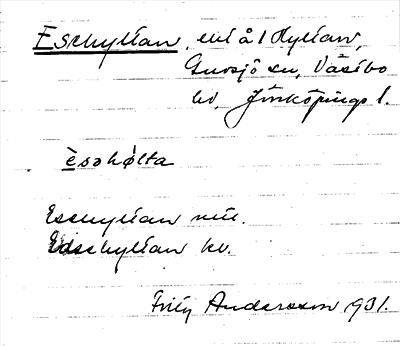 Eschyltan, enl å 1 Hyltan,
Gnosjö sn, Västbo
hd, Jönköpings l.
èsəhø̀lta
Eschyltan mtl.
Edschyltan kv.
Fritz Andersson 1931.